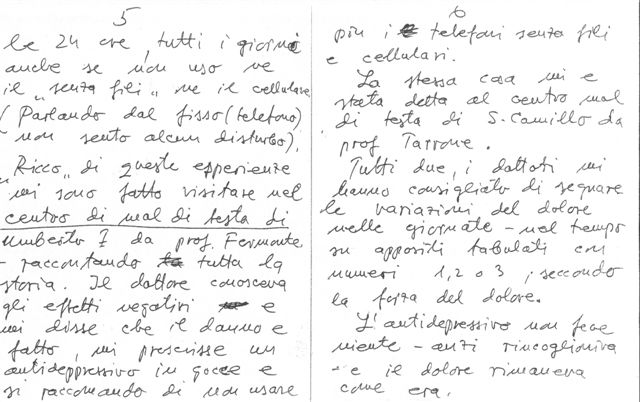 5
le 24 ore, tutti i giorni
anche se non uso ne
il „senza fili" ne il cellulare
(Parlando dal fisso (telefono)
non sento alcun disturbo).
„Ricco" di queste esperienze
mi sono fatto visitare nel
centro di mal di testa di
Umberto I da prof. Fermonte
- raccontando tutta la
storia. Il dottore conosceva
gli effetti negativi e
mi disse che il danno e
fatto, mi prescrisse un
antideppressivo in gocce e
si raccomando di non usare
6
più i telefoni senza fili
e cellulari.
La stessa cosa mi e
stata detta al centro mal
di testa di S. Camillo da
prof Tarrone.
Tutti due, i dottori mi
hanno consigliato di segnare
le variazioni del dolore
nelle giornate - nel tempo
su appositi tabulati con
numeri 1, 2 o 3, secondo
la forza del dolore.
L'antidepressivo non fece
niente - anzi rincoglioniva
- e il dolore rimaneva
come era.